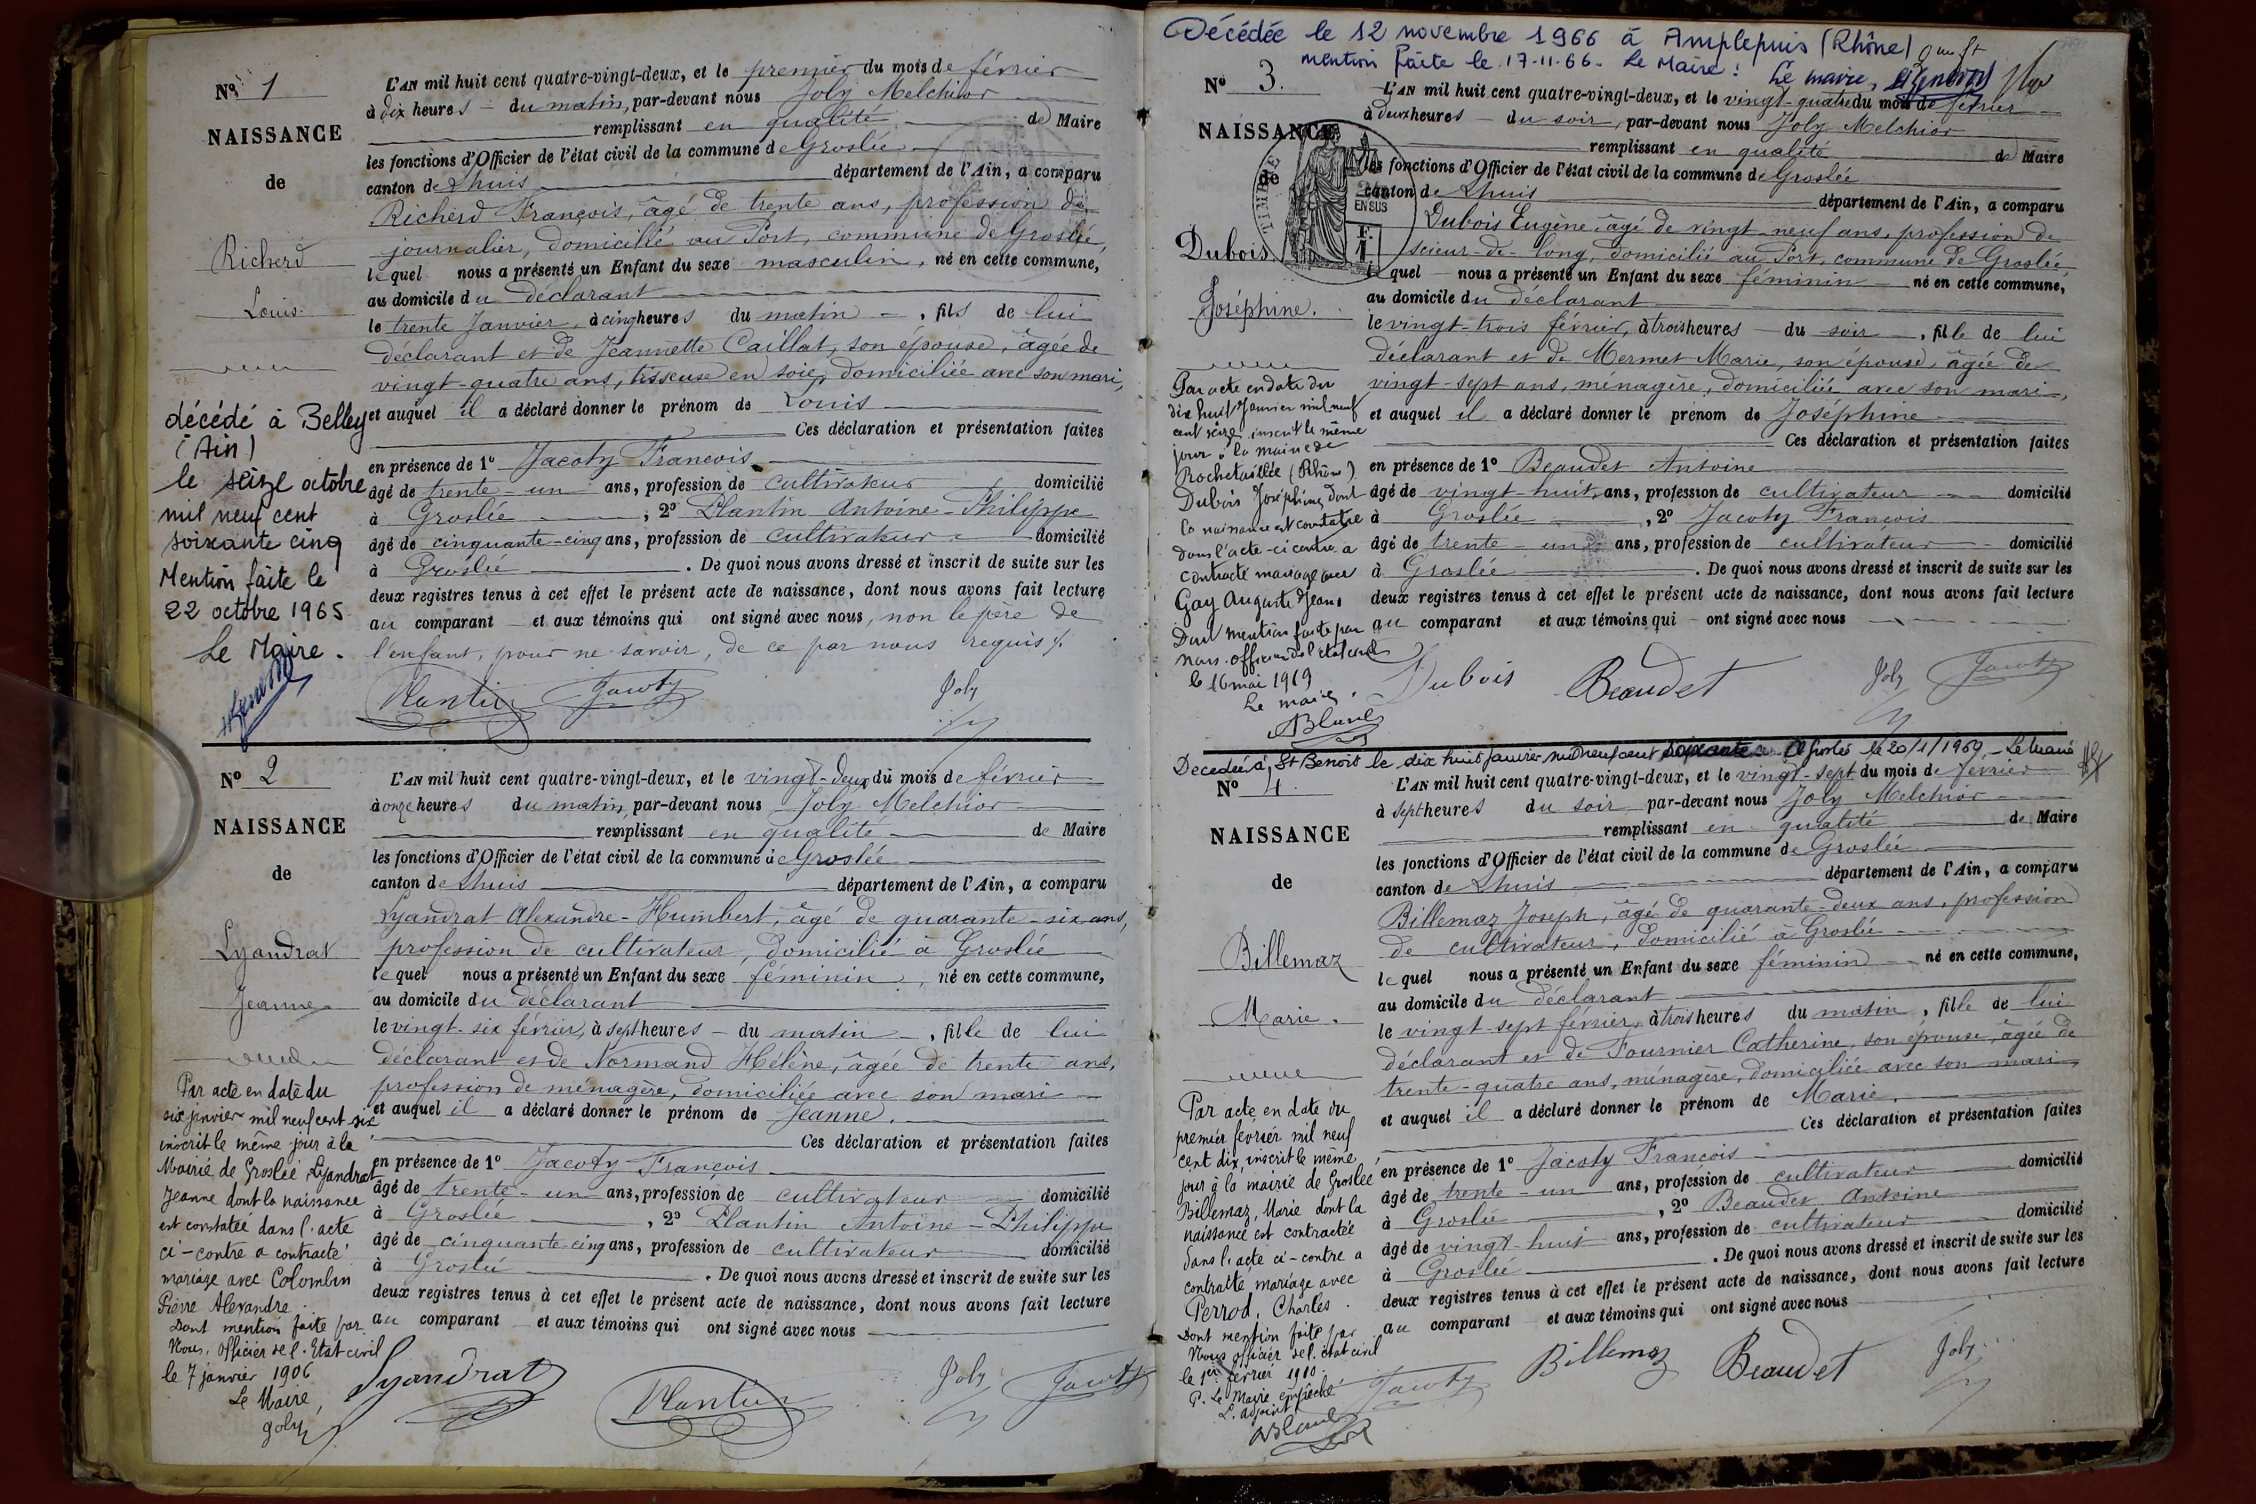 Nº 1
NAISSANCE
de
Richerd
Louis
décédé à Belley
(Ain)
le seize octobre
mil neuf cent
soixante cinq
Mention faite le
22 octobre 1965
Le Maire.
L'AN mil huit cent quatre-vingt-deux, et le premier du mois de février
à dix heures du matin, par-devant nous Joly Melchior
remplissant en qualité de Maire
les fonctions d'Officier de l'état civil de la commune de Groslée
canton de Lhuis département de l'Ain, a comparu
Richerd François, âgé de trente ans, profession de
journalier, domicilié au Port, commune de Groslée,
lequel nous a présenté un Enfant du sexe masculin, né en cette commune,
au domicile du déclarant
le trente Janvier, à cinq heures du matin, fils de lui
déclarant et de Jeannette Caillat, son épouse, âgée de
vingt-quatre ans, tisseuse en soie, domiciliée avec son mari,
et auquel il a déclaré donner le prénom de Louis
Ces déclaration et présentation faites
en présence de 1º Jacoty François
âgé de trente-un ans, profession de cultivateur domicilié
à Groslée, 2º Plantin Antoine-Philippe
âgé de cinquante-cinq ans, profession de cultivateur domicilié
à Groslée. De quoi nous avons dressé et inscrit de suite sur les
deux registres tenus à cet effet le présent acte de naissance, dont nous avons fait lecture
au comparant et aux témoins qui ont signé avec nous, non le père de
l'enfant, pour ne savoir, de ce par nous requis.
Plantin Jacoty Joly
Nº 2
NAISSANCE
de
Lyandrat
Jeanne
Par acte en date du
six janvier mil neuf cent six
inscrit le même jour à la
Mairie de Groslée, Lyandrat
Jeanne dont la naissance
est constatée dans l'acte
ci-contre a contracté
mariage avec Colombin
Pierre Alexandre
Dont mention faite par
Nous, Officier de l'Etat civil
le 7 janvier 1906
Le Maire,
Joly
L'AN mil huit cent quatre-vingt-deux, et le vingt-deux du mois de février
à onze heures du matin, par-devant nous Joly Melchior
remplissant en qualité de Maire
les fonctions d'Officier de l'état civil de la commune de Groslée
canton de Lhuis département de l'Ain, a comparu
Lyandrat Alexandre-Humbert, âgé de quarante-six ans,
profession de cultivateur, domicilié à Groslée
lequel nous a présenté un Enfant du sexe féminin, né en cette commune,
au domicile du déclarant
le vingt-six février, à sept heures du matin, fille de lui
déclarant et de Normand Hélène, âgée de trente ans,
profession de ménagère, domiciliée avec son mari
et auquel il a déclaré donner le prénom de Jeanne.
Ces déclaration et présentation faites
en présence de 1º Jacoty François
âgé de trente-un ans, profession de cultivateur domicilié
à Groslée, 2º Plantin Antoine-Philippe
âgé de cinquante-cinq ans, profession de cultivateur domicilié
à Groslée. De quoi nous avons dressé et inscrit de suite sur les
deux registres tenus à cet effet le présent acte de naissance, dont nous avons fait lecture
au comparant et aux témoins qui ont signé avec nous
Lyandrat Plantin Joly Jacoty
Décédée le 12 novembre 1966 à Amplepuis (Rhône)
mention faite le 17-11-66. Le Maire: Le maire,
Nº 3.
NAISSANCE
de
TIMBRE
EN SUS
Dubois
Joséphine.
Par acte en date du
dix huit Janvier mil neuf
cent seize inscrit le même
jour à la mairie de
Rochetaillée (Rhône)
Dubois Joséphine dont
la naissance est constatée
dans l'acte ci contre a
contracté mariage avec
Gay Auguste Jean
Dont mention faite par
nous officier de l'état civil
le 16 mai 1919
Le maire
ABlanc
L'AN mil huit cent quatre-vingt-deux, et le vingt-quatre du mois de février
à deux heures du soir, par-devant nous Joly Melchior
remplissant en qualité de Maire
les fonctions d'Officier de l'état civil de la commune de Groslée
canton de Lhuis département de l'Ain, a comparu
Dubois Eugène, âgé de vingt-neuf ans, profession de
scieur-de-long, domicilié au Port, commune de Groslée
lequel nous a présenté un Enfant du sexe féminin né en cette commune,
au domicile du déclarant
le vingt-trois février, à trois heures du soir, fille de lui
déclarant et de Mermet Marie, son épouse, âgée de
vingt-sept ans, ménagère, domiciliée avec son mari,
et auquel il a déclaré donner le prénom de Joséphine
Ces déclaration et présentation faites
en présence de 1º Beaudet Antoine
âgé de vingt-huit ans, profession de cultivateur domicilié
à Groslée, 2º Jacoty François
âgé de trente-un ans, profession de cultivateur domicilié
à Groslée. De quoi nous avons dressé et inscrit de suite sur les
deux registres tenus à cet effet le présent acte de naissance, dont nous avons fait lecture
au comparant et aux témoins qui ont signé avec nous
Dubois Beaudet Joly Jacoty
Decedée à St Benoit le dix huit janvier mil neuf cent soixante Groslée le 20/1/1969 Le Maire
Nº 4.
NAISSANCE
de
Billemaz
Marie.
Par acte en date du
premier février mil neuf
cent dix, inscrit le même
jour à la mairie de Groslée
Billemaz, Marie dont la
naissance est contractée
dans l'acte ci-contre a
contracté mariage avec
Perrod, Charles.
Dont mention faite par
Nous officier de l'état civil
le 1er février 1910
P. Le Maire empêché
L'adjoint
ABlanc
L'AN mil huit cent quatre-vingt-deux, et le vingt-sept du mois de février
à sept heures du soir par-devant nous Joly Melchior
remplissant en qualité de Maire
les fonctions d'Officier de l'état civil de la commune de Groslée
canton de Lhuis département de l'Ain, a comparu
Billemaz Joseph, âgé de quarante-deux ans, profession
de cultivateur, domicilié à Groslée
lequel nous a présenté un Enfant du sexe féminin né en cette commune,
au domicile du déclarant
le vingt-sept février, à trois heures du matin, fille de lui
déclarant et de Fournier Catherine, son épouse, âgée de
trente-quatre ans, ménagère, domiciliée avec son mari
et auquel il a déclaré donner le prénom de Marie.
Ces déclaration et présentation faites
en présence de 1º Jacoty François
âgé de trente-un ans, profession de cultivateur domicilié
à Groslée, 2º Beaudet Antoine
âgé de vingt-huit ans, profession de cultivateur domicilié
à Groslée. De quoi nous avons dressé et inscrit de suite sur les
deux registres tenus à cet effet le présent acte de naissance, dont nous avons fait lecture
au comparant et aux témoins qui ont signé avec nous
Jacoty Billemaz Beaudet Joly